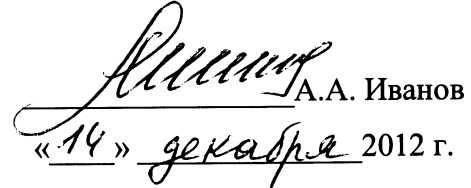 А.А. Иванов
«14» декабря 2012 г.